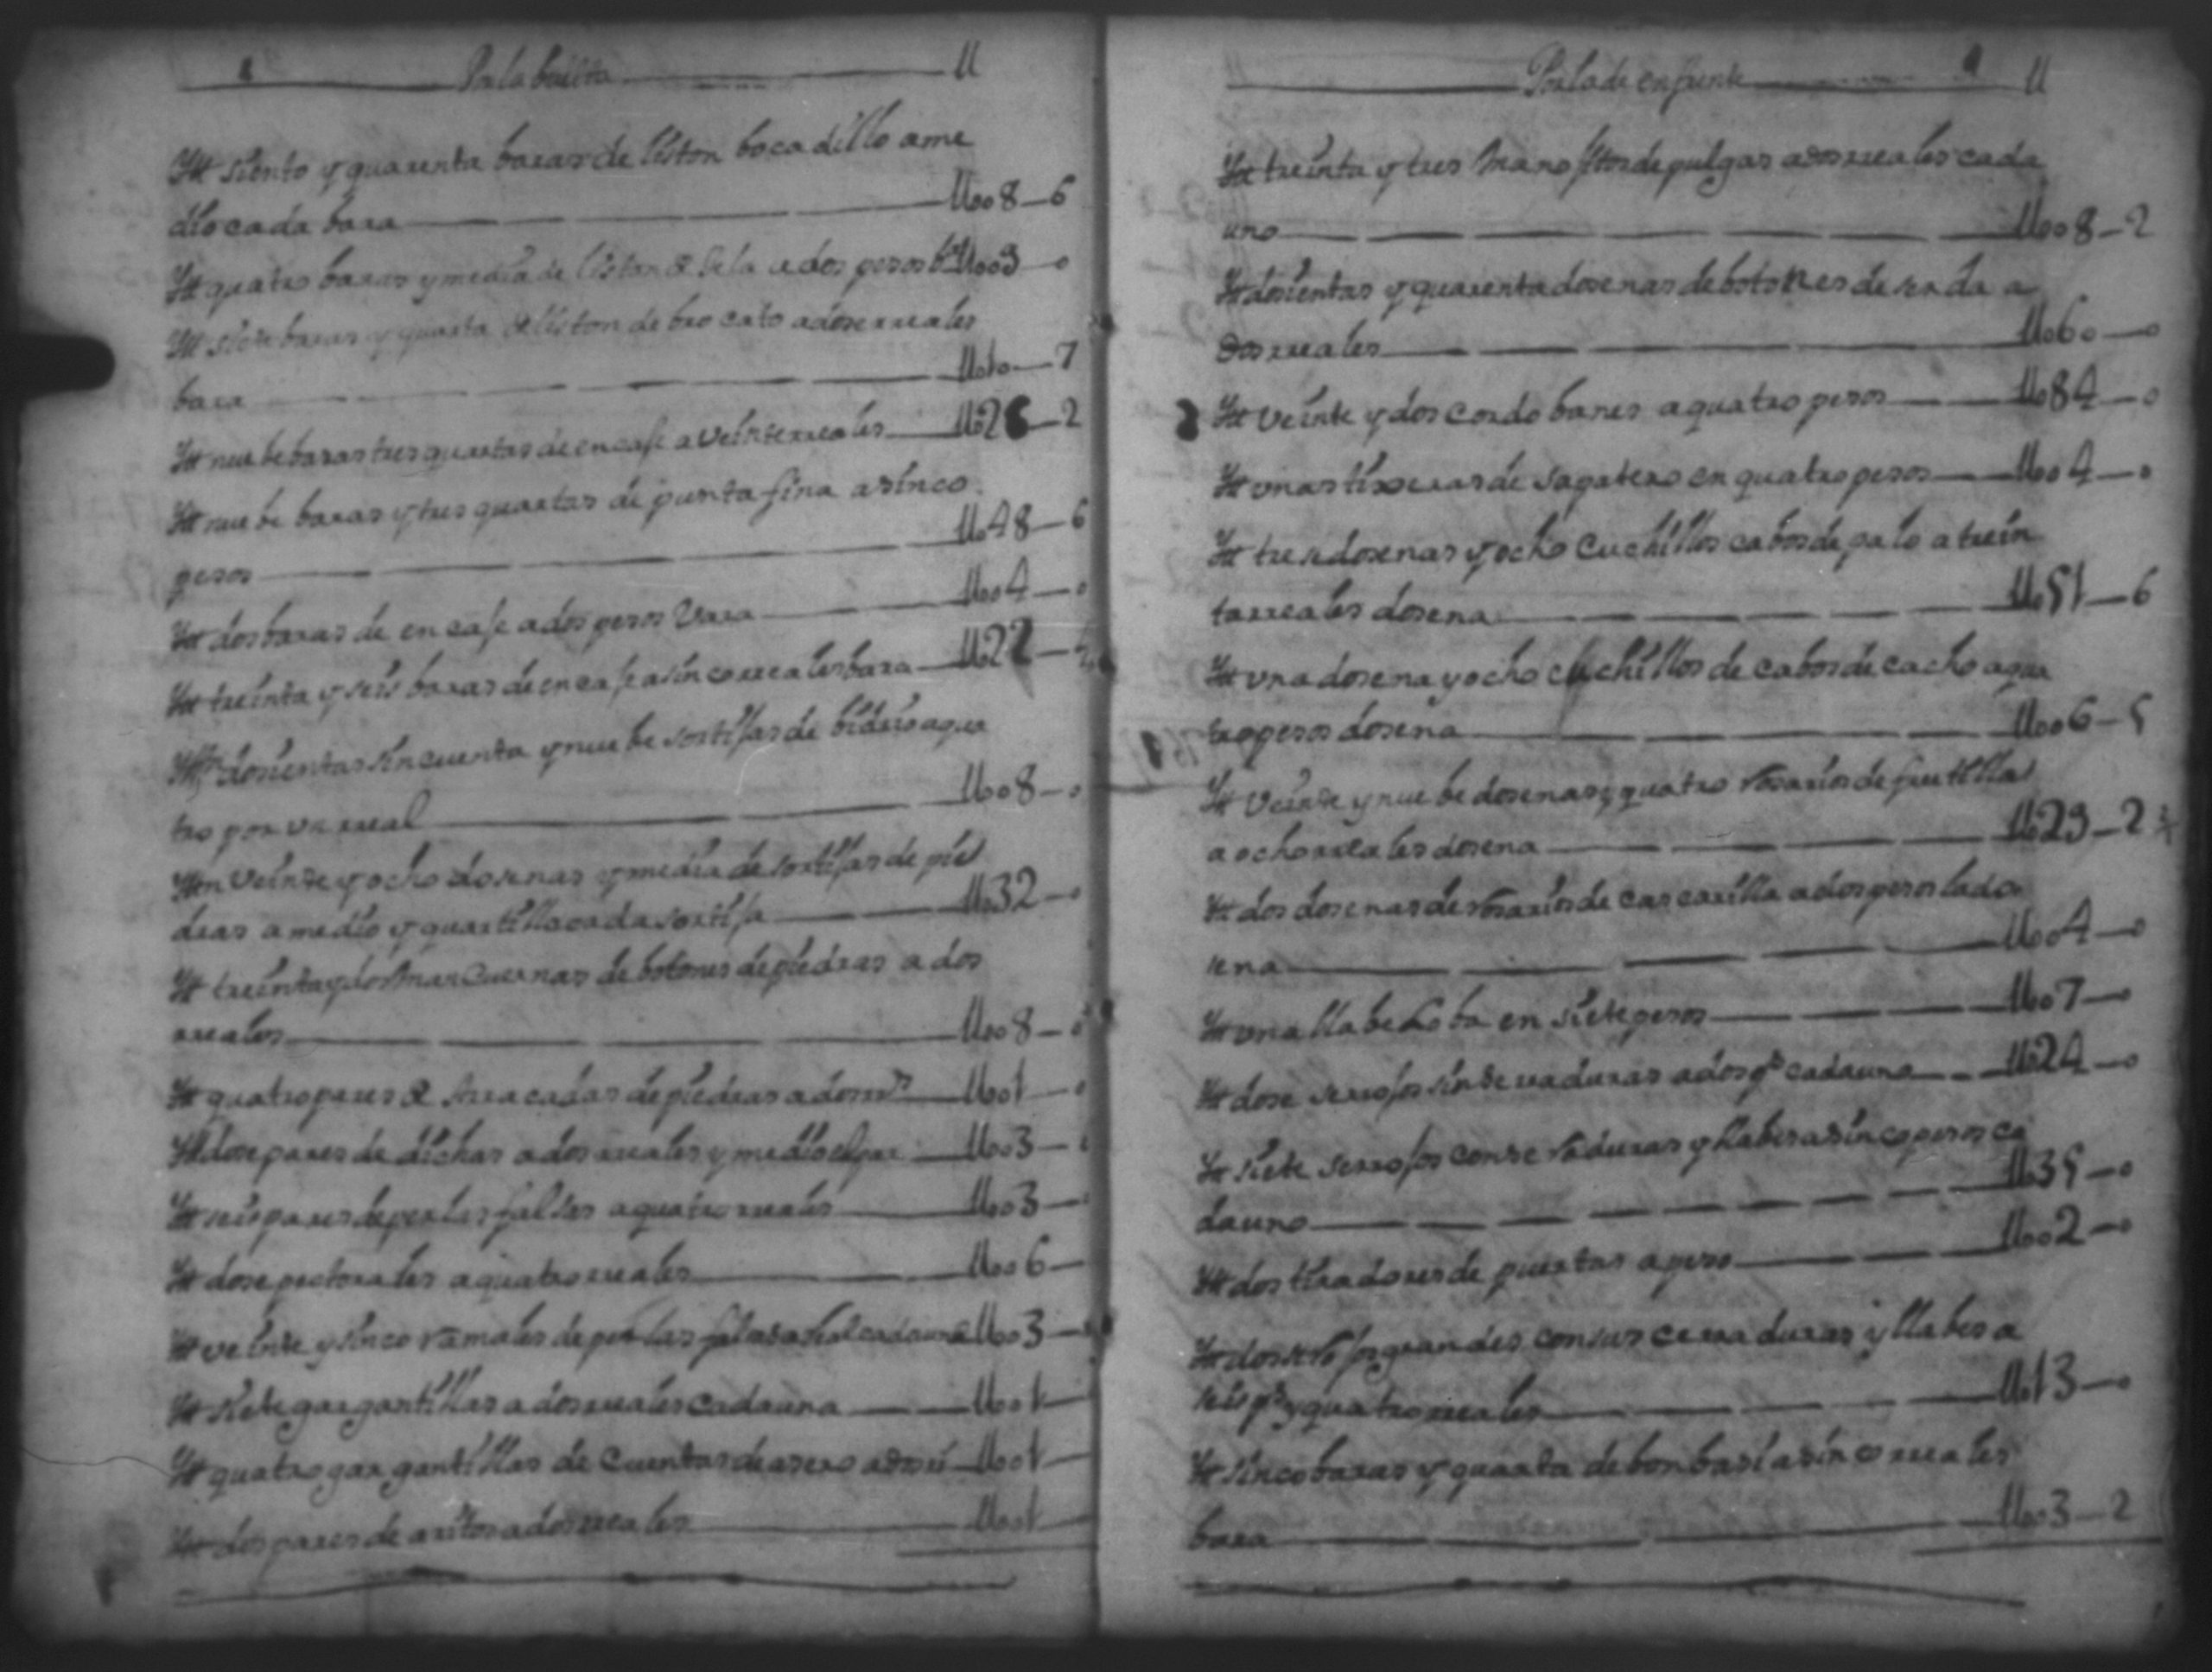 Por la buelta ll
Ytt siento y quarenta baras de liston bocadillo a me
dio cada bara ll008–6
Ytt quatro baras y media de liston de tela a dos pesos ba ll009–0
Ytt siete baras y quarta de liston de brocato a dose rreales
bara ll010–7
Ytt nuebe baras tres quartas de encaje a veinte rreales ll026–2
Ytt nuebe baras y tres quartas de punta fina a sinco
pesos ll048–6
Ytt dos baras de encaje a dos pesos Vara ll004–0
Ytt treinta y seis baras de encaje a sinco rreales bara ll022–4
Yttn dosientas sincuenta y nuebe sortijas de bidrio a qua
tro por un rreal ll008–0
Yttn veinte y ocho dosenas y media de sortijas de pie
dras a medio y quartilla cada sortija ll032–0
Ytt treinta y dos Mancuernas de botones de piedras a dos
rreales ll008–0
Ytt quatro pares de Arracadas de piedras a dos rrs ll001–0
Ytt dose pares de dichas a dos rreales y medio el par ll003–
Ytt seis pares de perlas falsas a quatro rreales ll003–
Ytt dose pectorales a quatro rreales ll006–
Ytt veinte y sinco ramales de perlas falsas a real cada uno ll003–
Ytt siete gargantillas a dos rreales cada una ll001–
Ytt quatro gargantillas de Cuentas de asero a dos rr ll001–
Ytt dos pares de aritos a dos rreales ll001–
Por la de enfrente ll
Ytt treinta y tres Manojitos de pulgas a dos rreales cada
uno ll008–2
Ytt dosientas y quarenta dosenas de botones de seda a
dos rreales ll060–0
Ytt Veinte y dos cordobanes a quatro pesos ll084–0
Ytt unas tixeras de sapatero en quatro pesos ll004–0
Ytt trese dosenas y ocho Cuchillos cabos de palo a trein
ta rreales dosena ll051–6
Ytt una dosena y ocho cuchillos de cabos de cacho a qua
tro pesos dosena ll006–5
Ytt Veinte y nuebe dosenas y quatro rosarios de frutilla
a ocho rreales dosena ll029–2
Ytt dos dosenas de rosarios de cascarilla a dos pesos la do
sena ll004–0
Ytt una llabe en siete pesos ll007–0
Ytt dose serrojos sin serraduras a dos ps cada uno ll024–0
Ytt siete serrojos con serraduras y llabes a sinco pesos ca
da uno ll035–0
Ytt dos tiradores de puertas a peso ll002–0
Ytt dos serrojos grandes con sus cerraduras y llabes a
seis ps y quatro rreales ll013–0
Ytt sinco baras y quarta de bombasi a sinco rreales
bara ll003–2